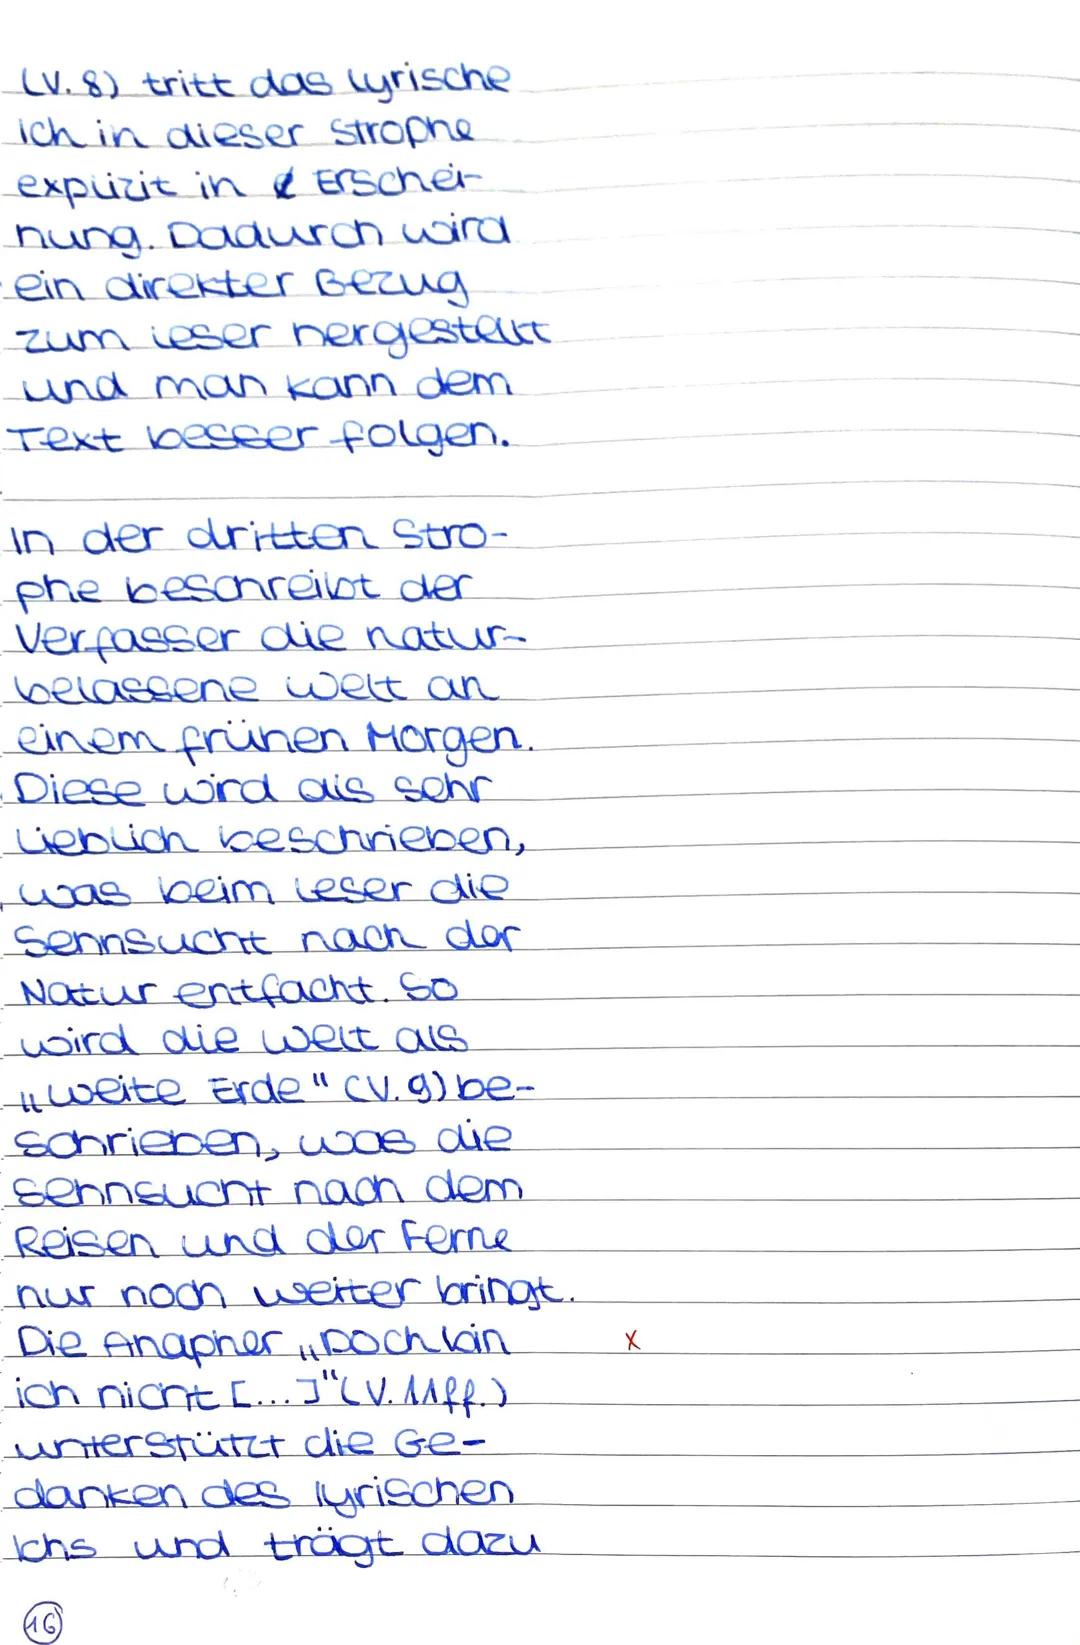 (V. 8) tritt das lyrische
ich in dieser Strophe
explizit in Erschei-
nung. Dadurch wird
ein direkter Bezug
zum Leser hergestellt
und man kann dem
Text besser folgen.
In der dritten Stro-
phe beschreibt der
Verfasser die natur-
belassene Welt an
einem frühen Morgen.
Diese wird als sehr
lieblich beschrieben,
was beim Leser die
Sehnsucht nach der
Natur entfacht. So
wird die Welt als
„weite Erde" (V. 9) be-
schrieben, was die
Sehnsucht nach dem
Reisen und der Ferne
nur noch weiter bringt.
Die Anapher „Doch bin x
ich nicht [...]" (V. 11ff.)
unterstützt die Ge-
danken des lyrischen
Ichs und trägt dazu
16